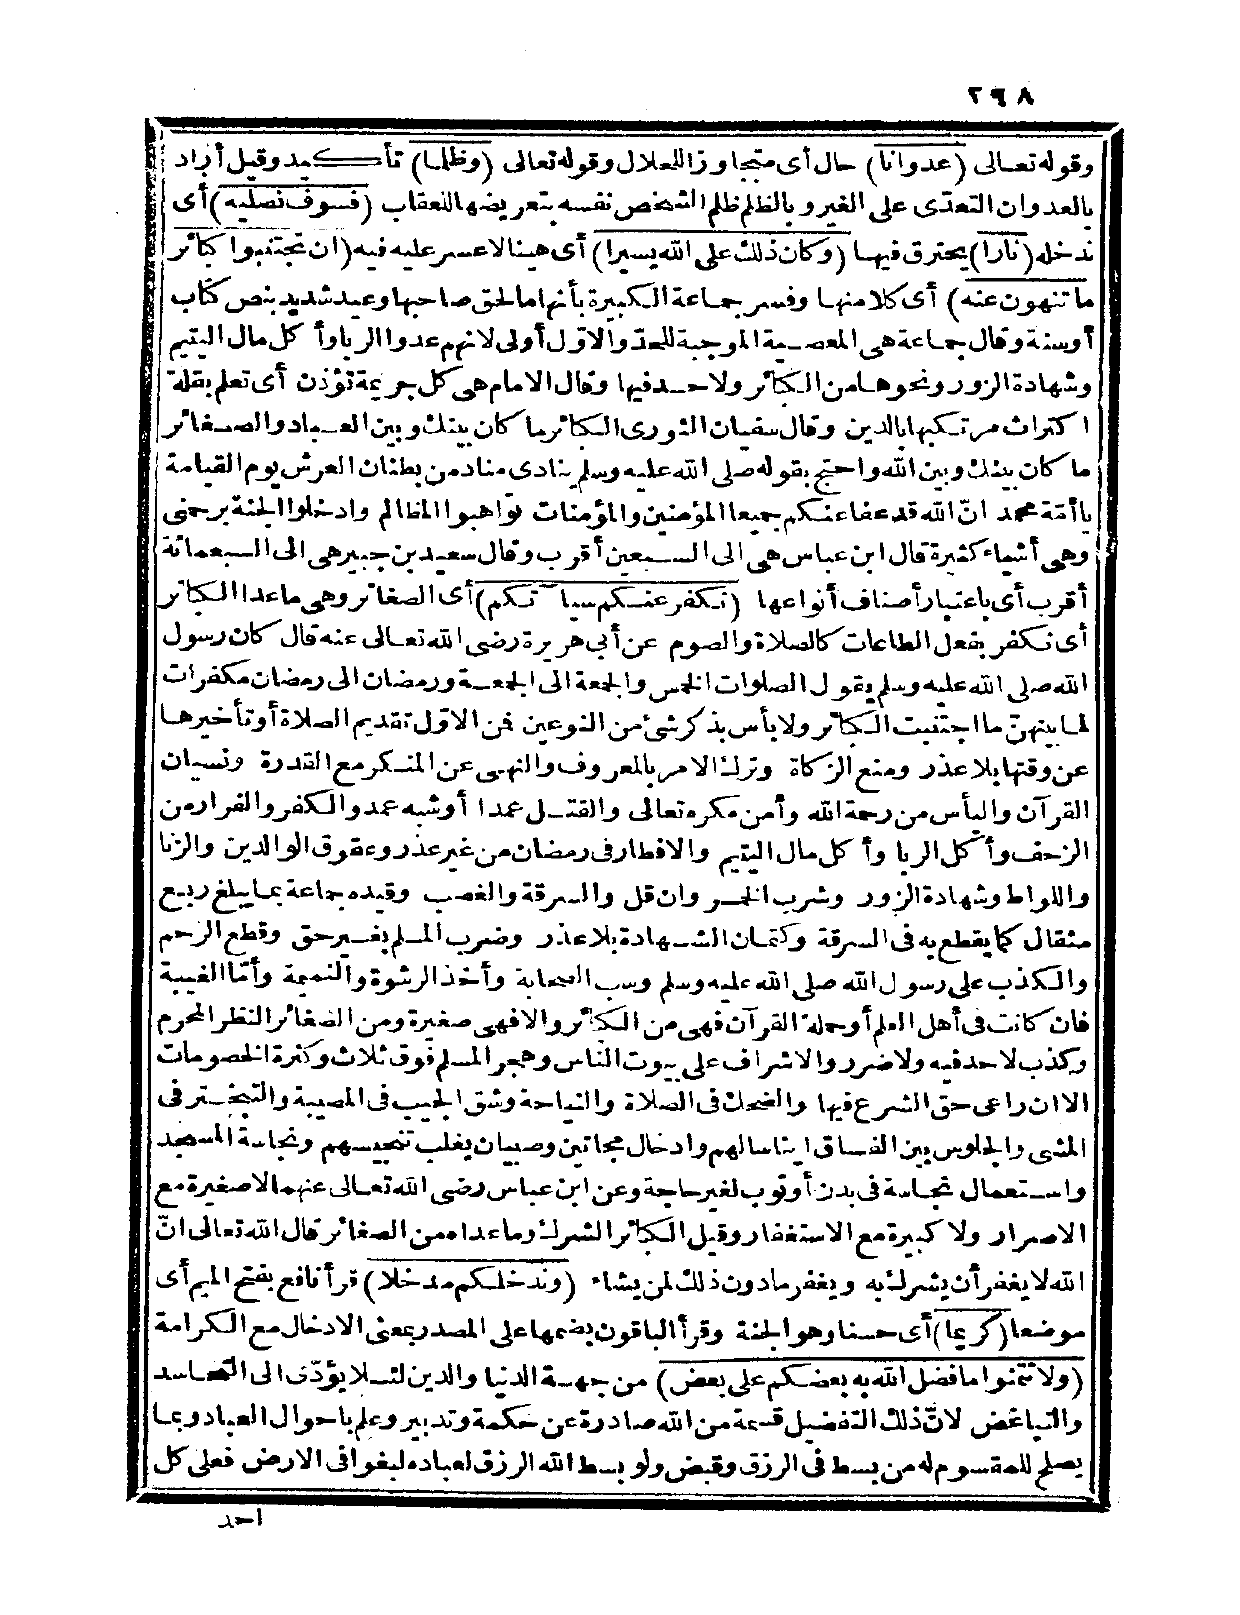 ٢٩٨
وقوله تعالى (عدوانا) حال أى متجاوزا للحلال وقوله تعالى (وظلما) تأكيد وقيل أراد
بالعدوان التعدّى على الغير وبالظلم ظلم الشخص نفسه بتعريضها للعقاب (فسوف نصليه) أى
ندخله (نارا) يحترق فيها (وكان ذلك على الله يسيرا) أى هينا لا عسر عليه فيه (ان تجتنبوا كبائر
ما تنهون عنه) أى كلا منها وفسر جماعة الكبيرة بأنها ما لحق صاحبها وعيد شديد بنص كتاب
أو سنة وقال جماعة هى المعصية الموجبة للحدّ والاوّل أولى لانهم عدوا الربا وأكل مال اليتيم
وشهادة الزور ونحوها من الكبائر ولا حد فيها وقال الامام هى كل جريمة تؤذن أى تعلم بقلة
اكتراث مرتكبها بالدين وقال سفيان الثورى الكبائر ما كان بينك وبين العباد والصغائر
ما كان بينك وبين الله واحتج بقوله صلى الله عليه وسلم ينادى مناد من بطنان العرش يوم القيامة
يا أمّة محمد انّ الله قد عفا عنكم جميعا المؤمنين والمؤمنات تواهبوا المظالم وادخلوا الجنة برحمتى
وهى أشياء كثيرة قال ابن عباس هى الى السبعين أقرب وقال سعيد بن جبير هى الى السبعمائة
أقرب أى باعتبار أصناف أنواعها (نكفر عنكم سيآتكم) أى الصغائر وهى ما عدا الكبائر
أى نكفر بفعل الطاعات كالصلاة والصوم عن أبى هريرة رضى الله تعالى عنه قال كان رسول
الله صلى الله عليه وسلم يقول الصلوات الخمس والجمعة الى الجمعة ورمضان الى رمضان مكفرات
لما بينهنّ ما اجتنبت الكبائر ولا بأس بذكر شئ من النوعين فمن الاوّل تقديم الصلاة أو تأخيرها
عن وقتها بلا عذر ومنع الزكاة وترك الامر بالمعروف والنهى عن المنكر مع القدرة ونسيان
القرآن واليأس من رحمة الله وأمن مكره تعالى والقتل عمدا أو شبه عمد والكفر والفرار من
الزحف وأكل الربا وأكل مال اليتيم والافطار فى رمضان من غير عذر وعقوق الوالدين والزنا
واللواط وشهادة الزور وشرب الخمر وان قل والسرقة والغصب وقيده جماعة بما يبلغ ربيع
مثقال كما يقطع به فى السرقة وكتمان الشهادة بلا عذر وضرب المسلم بغير حق وقطع الرحم
والكذب على رسول الله صلى الله عليه وسلم وسب الصحابة وأخذ الرشوة والنميمة وأمّا الغيبة
فان كانت فى أهل العلم أو حملة القرآن فهى من الكبائر والا فهى صغيرة ومن الصغائر النظر المحرم
وكذب لا حد فيه ولا ضرر والاشراف على بيوت الناس وهجر المسلم فوق ثلاث وكثرة الخصومات
الا ان راعى حق الشرع فيها والضحك فى الصلاة والنياحة وشق الجيب فى المصيبة والتبختر فى
المشى والجلوس بين الفساق ايناسا لهم وادخال مجانين وصبيان يغلب تنجيسهم ونجاسة المسجد
واستعمال نجاسة فى بدن أو ثوب لغير حاجة وعن ابن عباس رضى الله تعالى عنهما لا صغيرة مع
الاصرار ولا كبيرة مع الاستغفار وقيل الكبائر الشرك وما عداه من الصغائر قال الله تعالى انّ
الله لا يغفر أن يشرك به ويغفر ما دون ذلك لمن يشاء (وندخلكم مدخلا) قرأ نافع بفتح الميم أى
موضعا (كريما) أى حسنا وهو الجنة وقرأ الباقون بضمها على المصدر بمعنى الادخال مع الكرامة
(ولا تتمنوا ما فضل الله به بعضكم على بعض) من جهة الدنيا والدين لئلا يؤدّى الى التحاسد
والتباغض لانّ ذلك التفضيل قسمة من الله صادرة عن حكمة وتدبير وعلم باحوال العباد وبما
يصلح للمقسوم له من بسط فى الرزق وقبض ولو بسط الله الرزق لعباده لبغوا فى الارض فعلى كل
احد